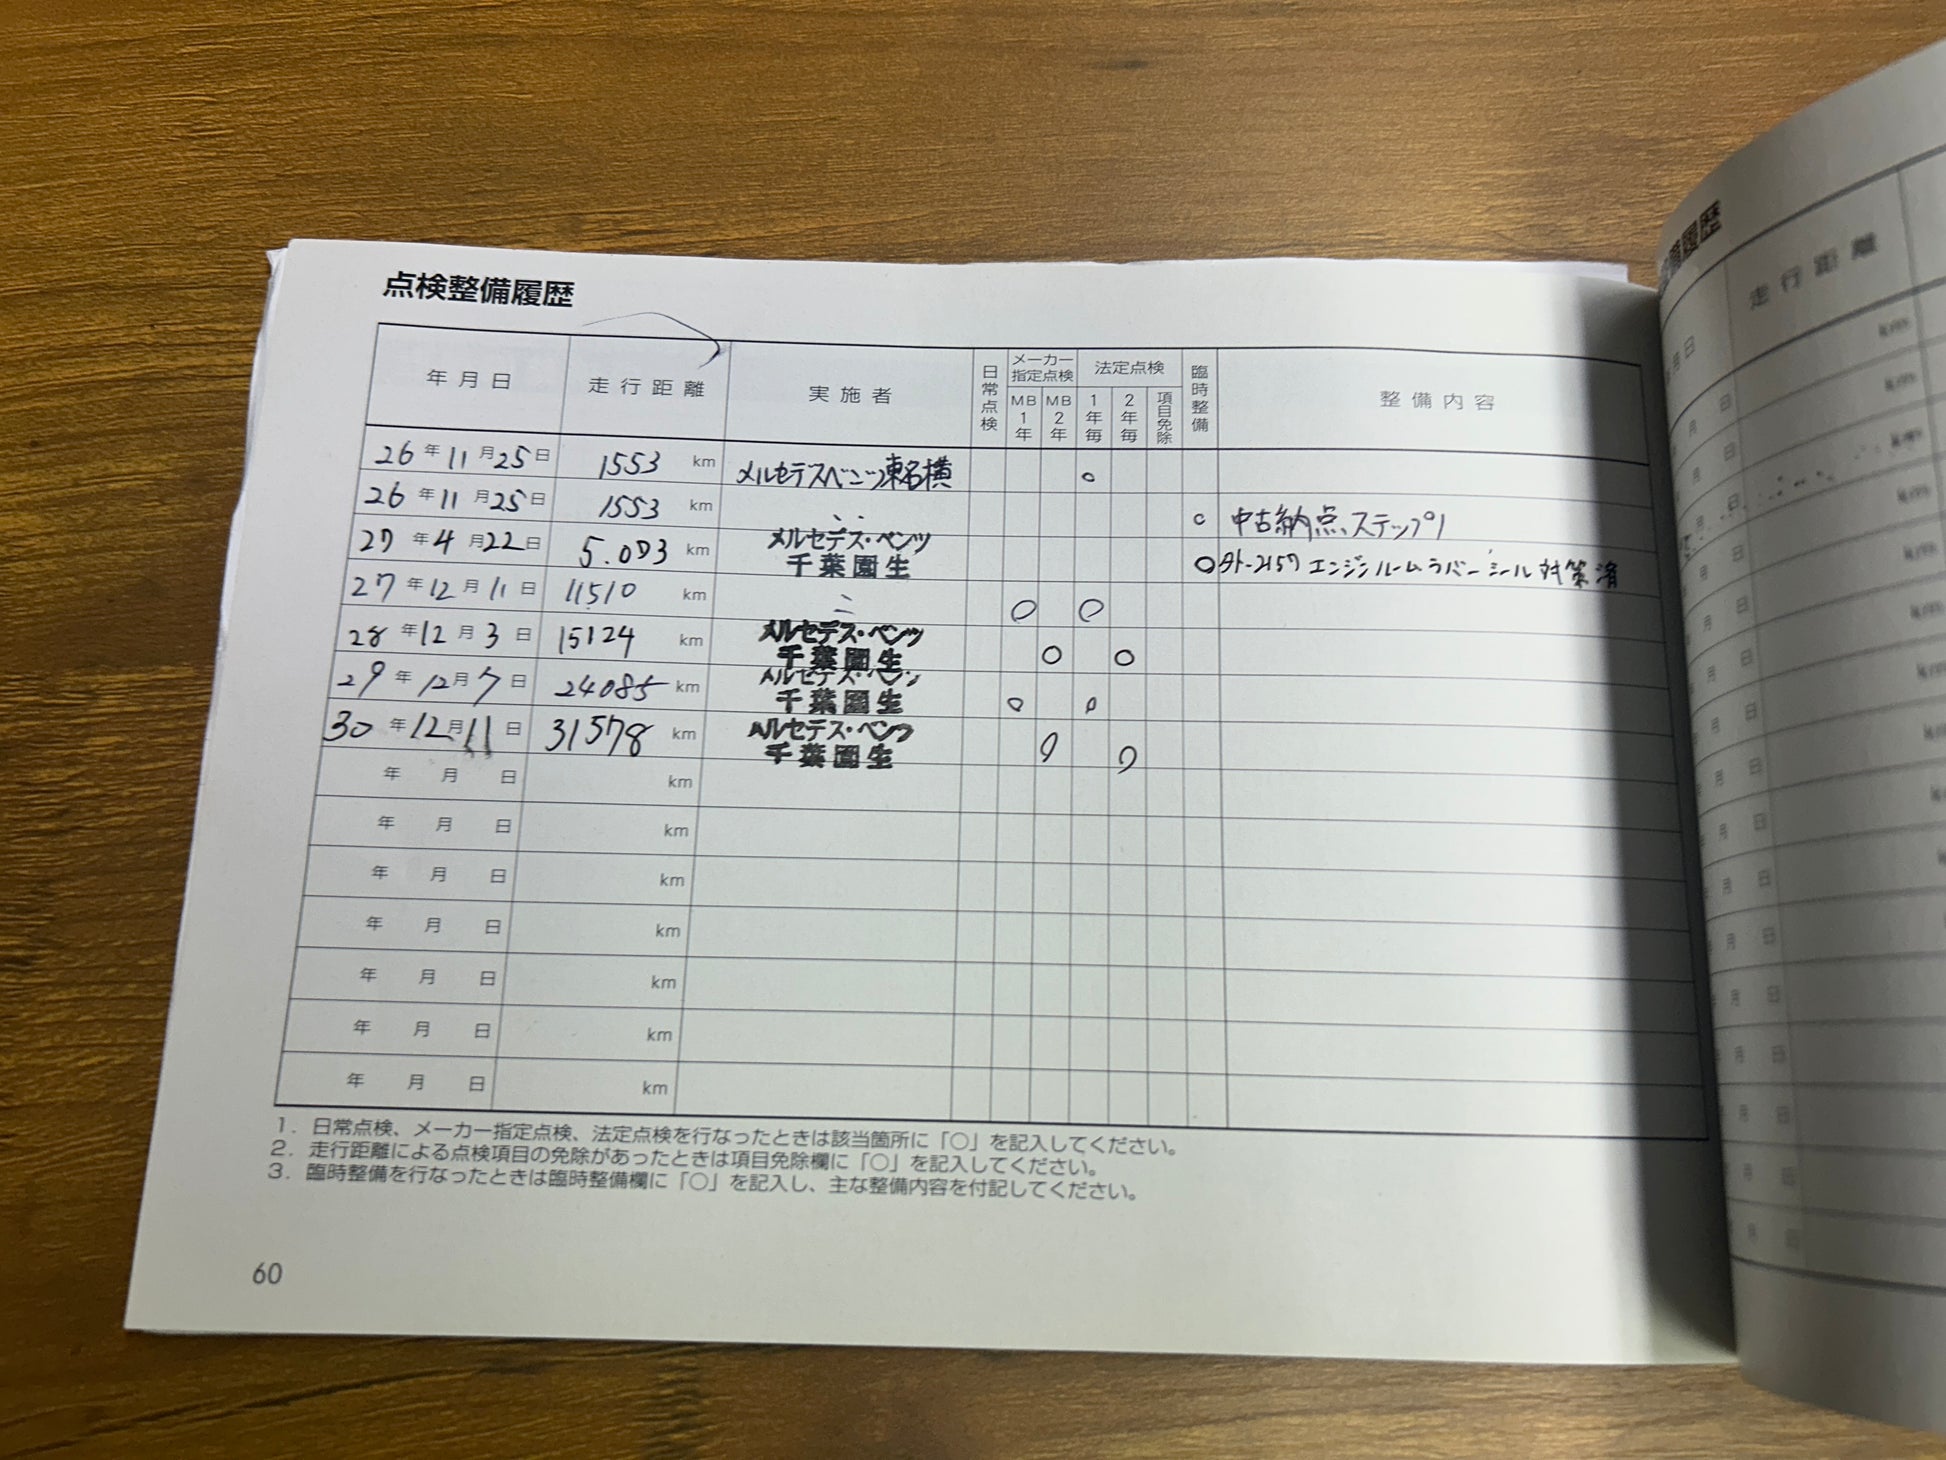 点検整備履歴
年月日 走行距離 実施者 日常点検 メーカー指定点検 法定点検 臨時整備 整備内容
MB1年 MB2年 1年毎 2年毎 項目免除
26年11月25日 1553 km メルセデスベンツ東名横 ○
26年11月25日 1553 km 〃 ○ 中古納点、ステップ1
27年4月22日 5.003 km メルセデス・ベンツ 千葉園生 ○ エンジンルームラバーシール対策済
27年12月11日 11510 km 〃 ○ ○
28年12月3日 15124 km メルセデス・ベンツ 千葉園生 ○ ○
29年12月7日 24085 km メルセデス・ベンツ 千葉園生 ○ ○
30年12月11日 31578 km メルセデス・ベンツ 千葉園生 ○ ○
年 月 日 km
年 月 日 km
年 月 日 km
年 月 日 km
年 月 日 km
年 月 日 km
年 月 日 km
1. 日常点検、メーカー指定点検、法定点検を行なったときは該当箇所に「○」を記入してください。
2. 走行距離による点検項目の免除があったときは項目免除欄に「○」を記入してください。
3. 臨時整備を行なったときは臨時整備欄に「○」を記入し、主な整備内容を付記してください。
60
備履歴
走行距離